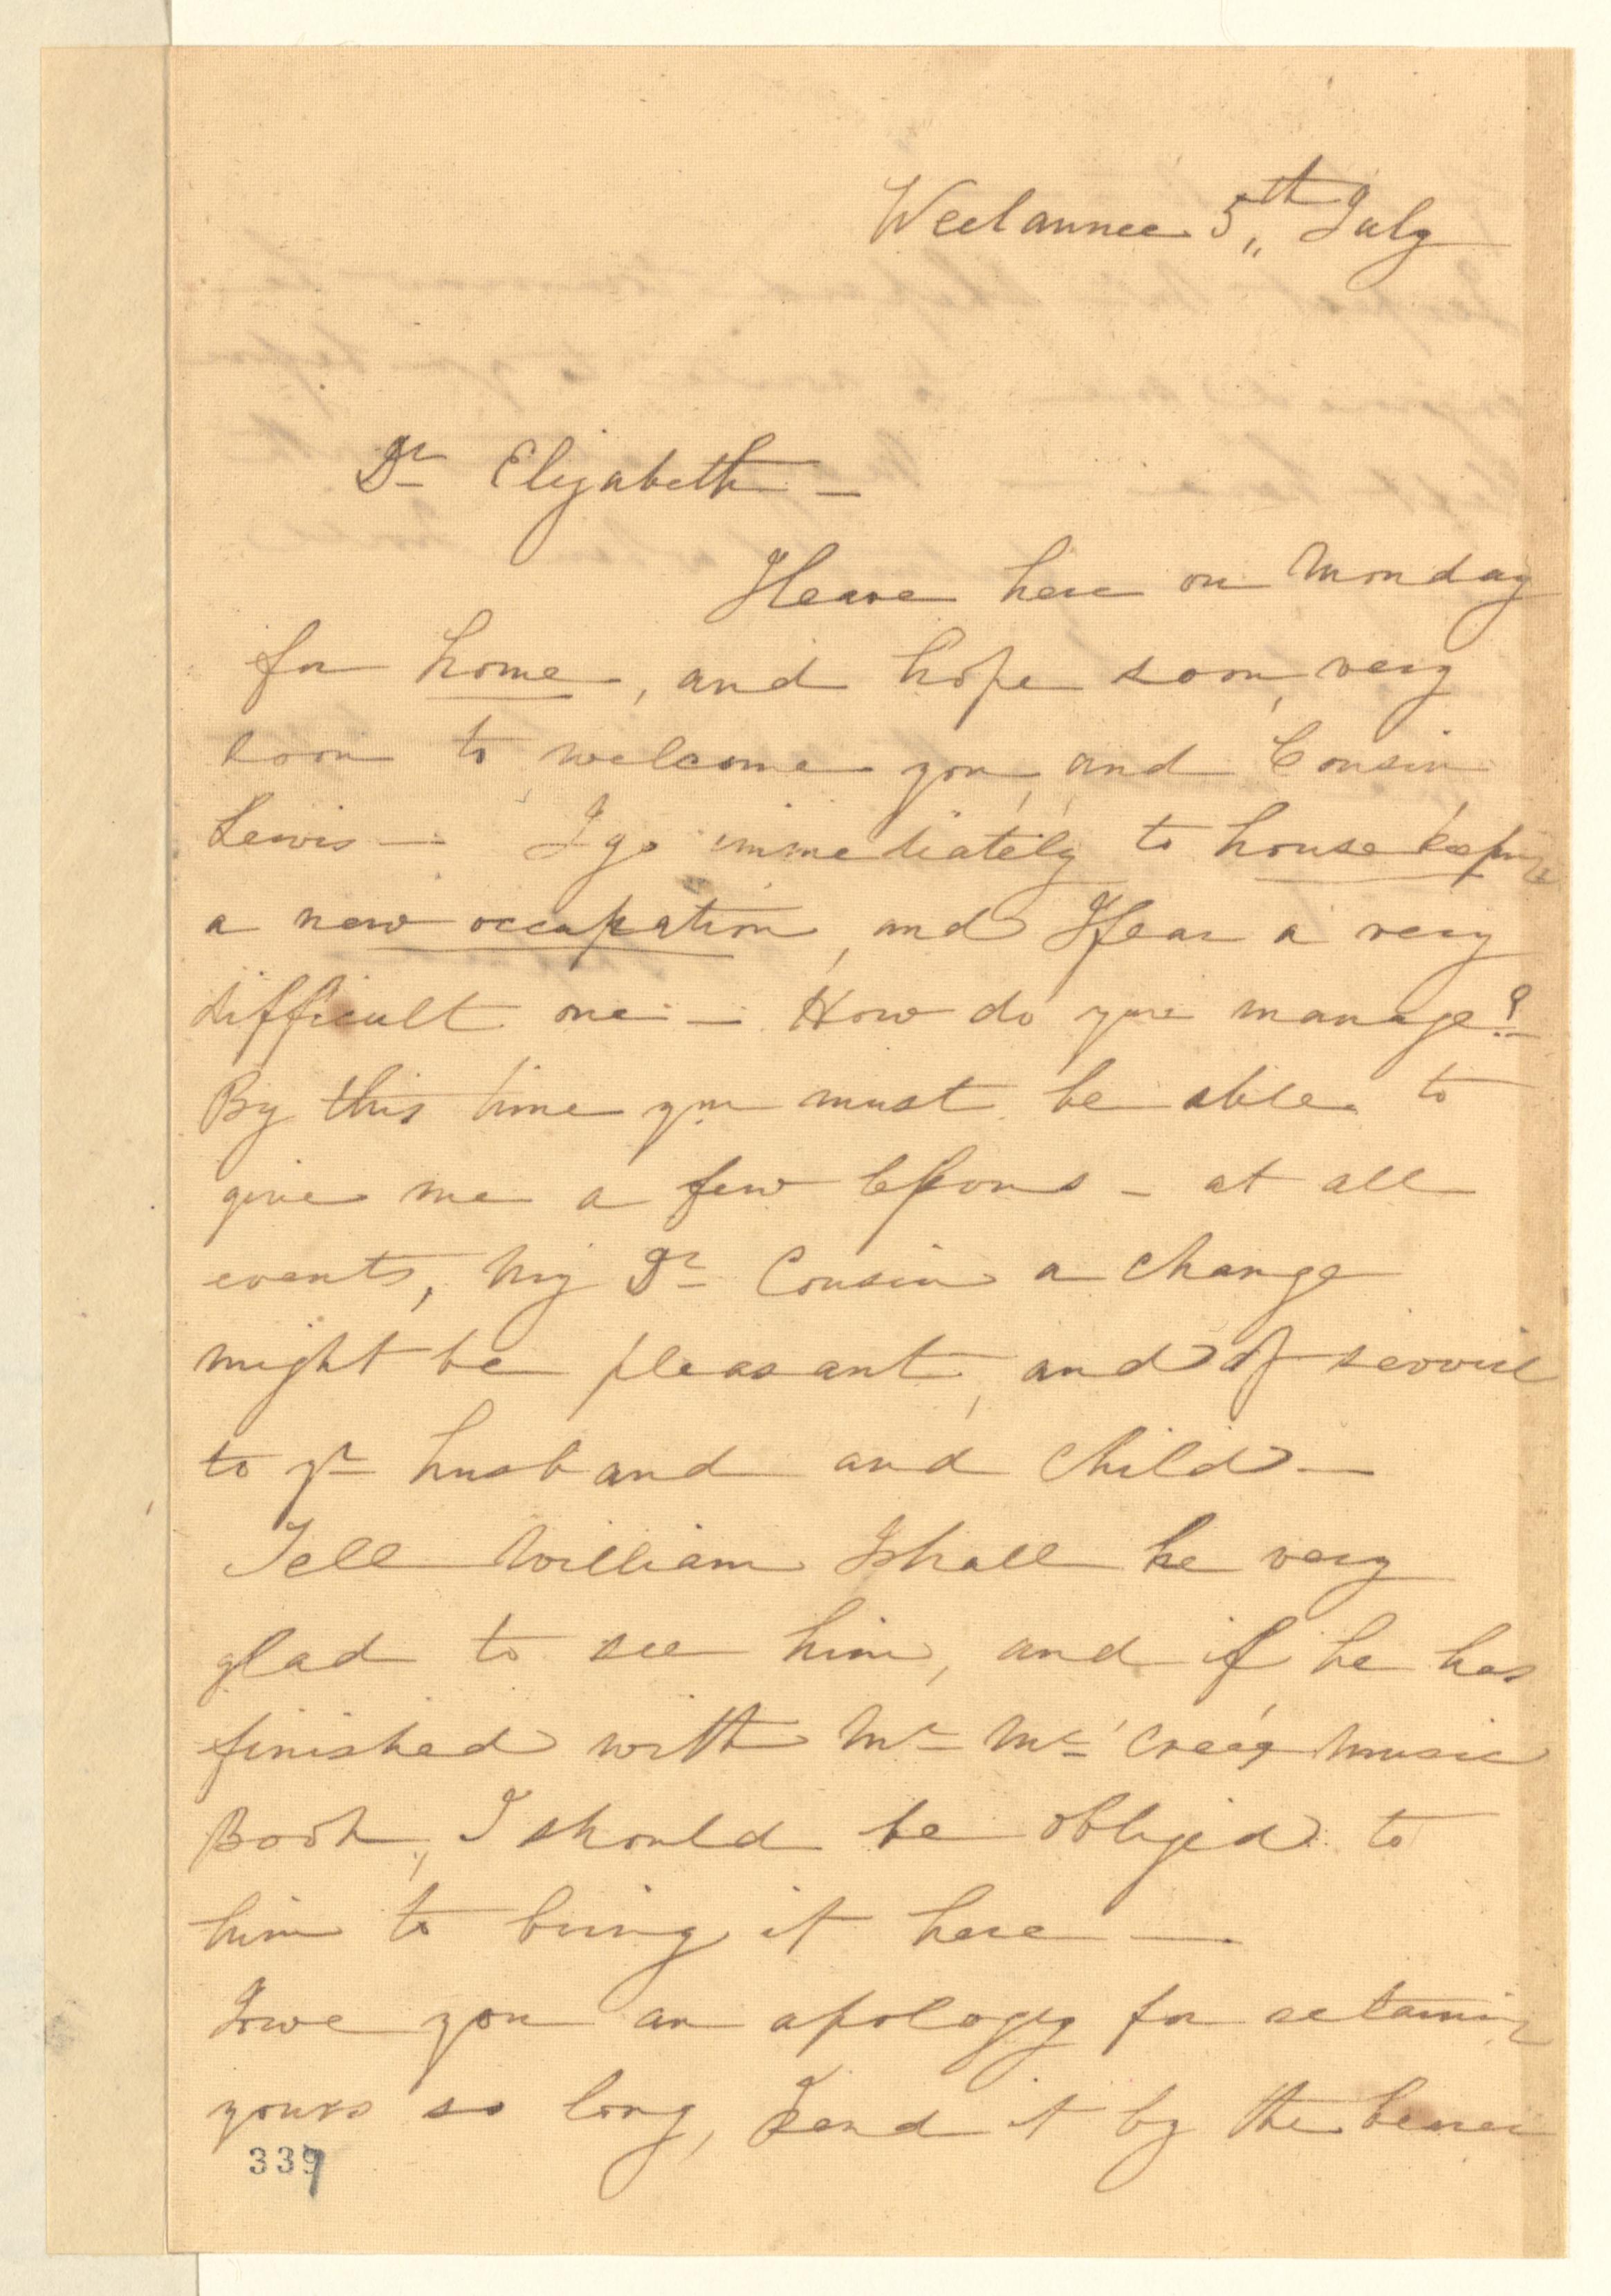 Weelaunee 5th July
Dr Elizabeth —
I leave here on Monday
for home, and hope soon, very
soon to welcome you, and Cousin
Lewis — I go immediately to housekeeping
a new occupation, and I fear a very
difficult one — How do you manage?
By this time you must be able to
give me a few lessons - at all
events, my Dr Cousin a change
might be pleasant, and of service
to yr husband and child —
Tell William I shall be very
glad to see him, and if he has
finished with Mr McCrea's music
Book, I should be obliged to
him to bring it here —
I owe you an apology for retaining
yours so long, I send it by the bearer
337